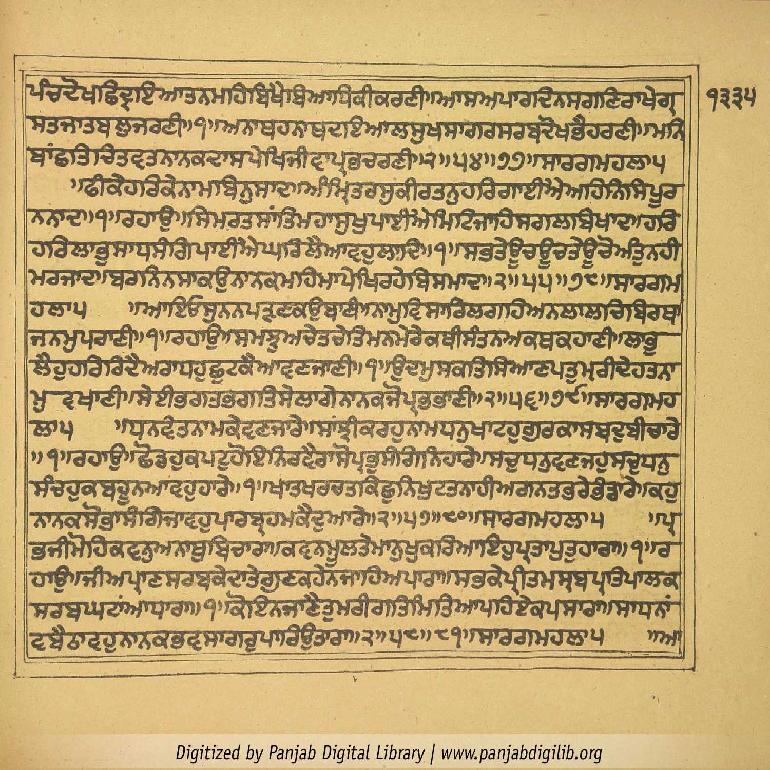 ਪੰਚਦੋਖਛਿਦ੍ਰਇਆਤਨਮਹਿਬਿਖੈਬਿਆਧਿਕੀਕਰਣੀ॥ਆਸਅਪਾਰਦਿਨਸਗਣਿਰਾਖੇਗ੍ਰ
ਸਤਜਾਤਬਲੁਜਰਣੀ॥੧॥ਅਨਾਥਹਨਾਥਦਇਆਲਸੁਖਸਾਗਰਸਰਬਦੋਖਭੈਹਰਣੀ॥ਮਨਿ
ਬਾਂਛਤਿਚਿਤਵਤਨਾਨਕਦਾਸਪੇਖਿਜੀਵਾਪ੍ਰਭਚਰਣੀ॥੨॥੫੪॥੭੭॥ਸਾਰਗਮਹਲਾ੫
॥ਫੀਕੇਹਰਿਕੇਨਾਮਬਿਨੁਸਾਦ॥ਅੰਮ੍ਰਿਤਰਸੁਕੀਰਤਨੁਹਰਿਗਾਈਐਅਹਿਨਿਸਿਪੂਰ
ਨਨਾਦ॥੧॥ਰਹਾਉ॥ਸਿਮਰਤਸਾਂਤਿਮਹਾਸੁਖੁਪਾਈਐਮਿਟਿਜਾਹਿਸਗਲਬਿਖਾਦ॥ਹਰਿ
ਹਰਿਲਾਭੁਸਾਧਸੰਗਿਪਾਈਐਘਰਿਲੈਆਵਹੁਲਾਦਿ॥੧॥ਸਭਤੇਊਚਊਚਤੇਊਚੋਅੰਤੁਨਹੀ
ਮਰਜਾਦ॥ਬਰਨਿਨਸਾਕਉਨਾਨਕਮਹਿਮਾਪੇਖਿਰਹੇਬਿਸਮਾਦ॥੨॥੫੫॥੭੮॥ਸਾਰਗਮ
ਹਲਾ੫ ॥ਆਇਓਸੁਨਨਪੜਣਕਉਬਾਣੀ॥ਨਾਮੁਵਿਸਾਰਿਲਗਹਿਅਨਲਾਲਚਿਬਿਰਥਾ
ਜਨਮੁਪਰਾਣੀ॥੧॥ਰਹਾਉ॥ਸਮਝੁਅਚੇਤਚੇਤਿਮਨਮੇਰੇਕਥੀਸੰਤਨਅਕਥਕਹਾਣੀ॥ਲਾਭੁ
ਲੈਹੁਹਰਿਰਿਦੈਅਰਾਧਹੁਛੁਟਕੈਆਵਣਜਾਣੀ॥੧॥ਉਦਮੁਸਕਤਿਸਿਆਣਪਤੁਮ੍ਰੀਦੇਹਤਨਾ
ਮੁ ਵਖਾਣੀ॥ਸੇਈਭਗਤਭਗਤਿਸੇਲਾਗੇਨਾਨਕਜੋਪ੍ਰਭਭਾਣੀ॥੨॥੫੬॥੭੯॥ਸਾਰਗਮਹ
ਲਾ੫ ॥ਧਨਵੰਤਨਾਮਕੇਵਣਜਾਰੇ॥ਸਾਂਝੀਕਰਹੁਨਾਮਧਨੁਖਾਟਹੁਗੁਰਕਾਸਬਦੁਵੀਚਾਰੇ
॥੧॥ਰਹਾਉ॥ਛੋਡਹੁਕਪਟੁਹੋਇਨਿਰਵੈਰਾਸੋਪ੍ਰਭੁਸੰਗਿਨਿਹਾਰੇ॥ਸਚੁਧਨੁਵਣਜਹੁਸਚੁਧਨੁ
ਸੰਚਹੁਕਬਹੂਨਆਵਹੁਹਾਰੇ॥੧॥ਖਾਤਖਰਚਤਕਿਛੁਨਿਖੁਟਤਨਾਹੀਅਗਨਤਭਰੇਭੰਡਾਰੇ॥ਕਹੁ
ਨਾਨਕਸੋਭਾਸੰਗਿਜਾਵਹੁਪਾਰਬ੍ਰਹਮਕੈਦੁਆਰੇ॥੨॥੫੭॥੮੦॥ਸਾਰਗਮਹਲਾ੫ ॥ਪ੍ਰ
ਭਜੀਮੋਹਿਕਵਨੁਅਨਾਥੁਬਿਚਾਰਾ॥ਕਵਨਮੂਲਤੇਮਾਨੁਖੁਕਰਿਆਇਹੁਪ੍ਰਤਾਪੁਤੁਹਾਰਾ॥੧॥ਰ
ਹਾਉ॥ਜੀਅਪ੍ਰਾਣਸਰਬਕੇਦਾਤੇਗੁਣਕਹੇਨਜਾਹਿਅਪਾਰਾ॥ਸਭਕੇਪ੍ਰੀਤਮਸ੍ਰਬਪ੍ਰਤਿਪਾਲਕ
ਸਰਬਘਟਾਂਆਧਾਰਾ॥੧॥ਕੋਇਨਜਾਣੈਤੁਮਰੀਗਤਿਮਿਤਿਆਪਹਿਏਕਪਸਾਰਾ॥ਸਾਧਨਾਂ
ਵਬੈਠਾਵਹੁਨਾਨਕਭਵਸਾਗਰੁਪਾਰਿਉਤਾਰਾ॥੨॥੫੮॥੮੧॥ਸਾਰਗਮਹਲਾ੫ ॥ਆ
੧੩੩੫
Digitized by Panjab Digital Library | www.panjabdigilib.org